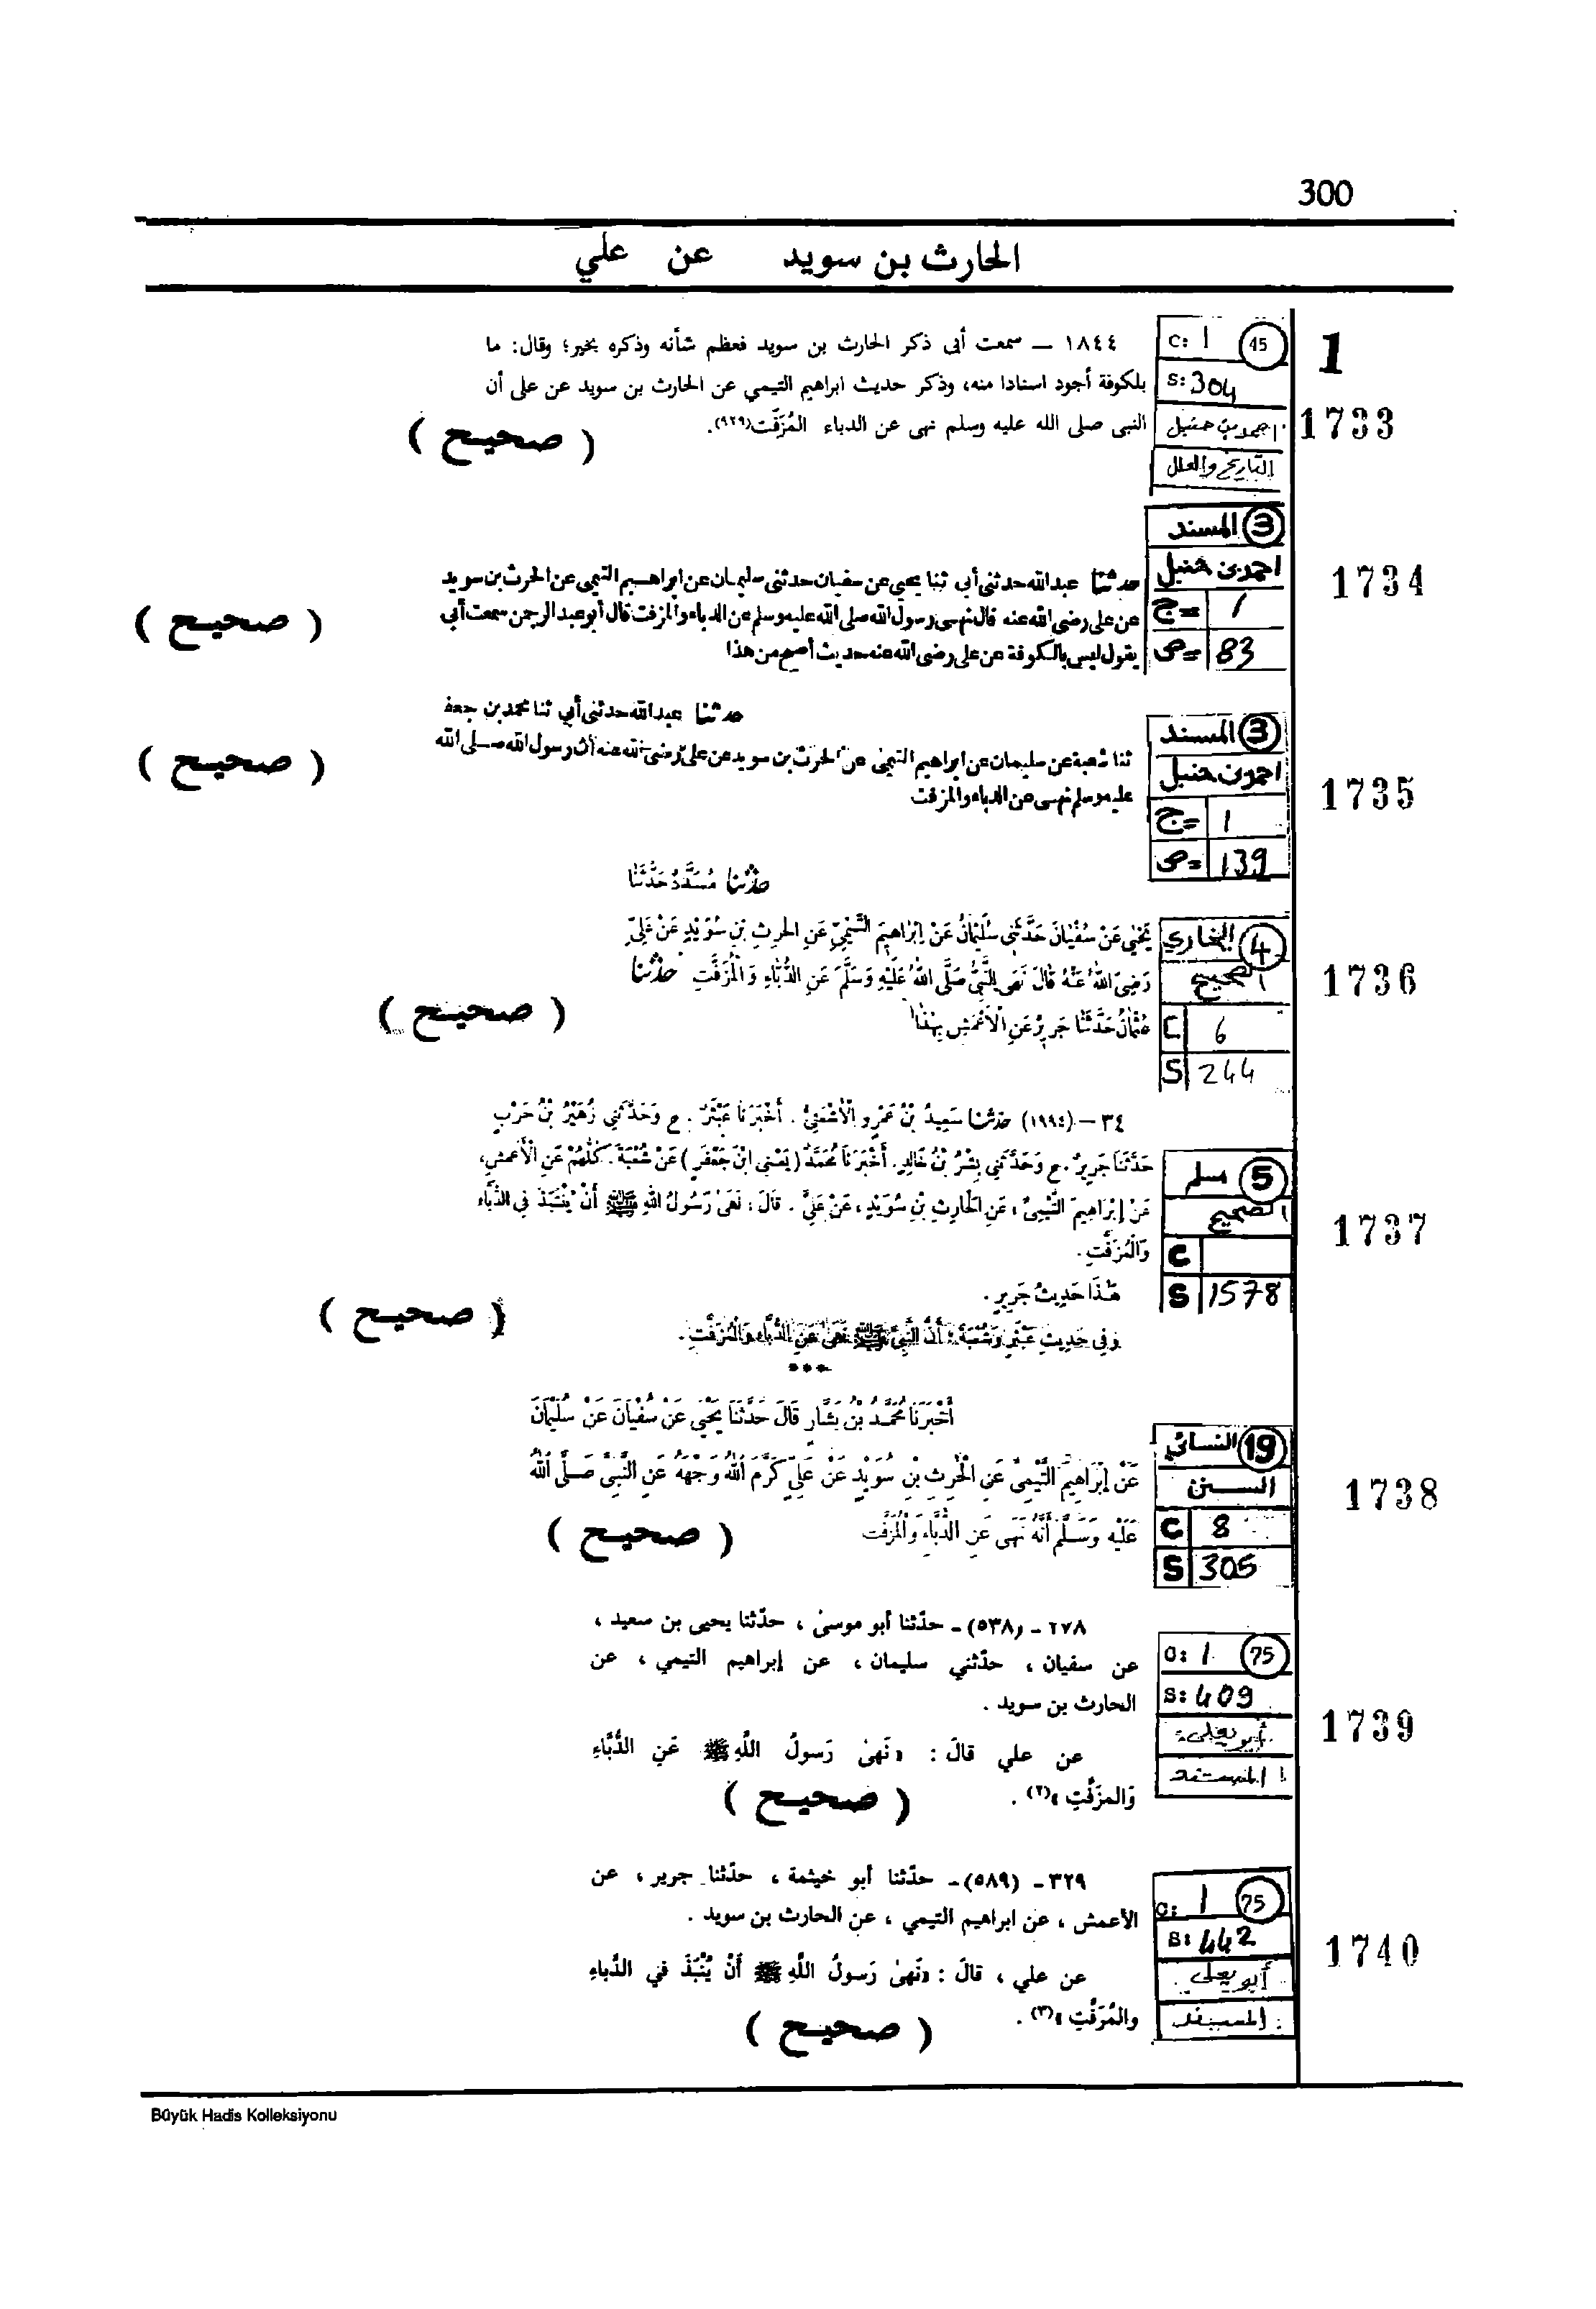 300
الحارث بن سويد عن علي
1
C: 1 45
S: 304
احمد بن حنبل
التاريخ والعلل
1733
١٨٤٤ — سمعت أبى ذكر الحارث بن سويد فعظم شأنه وذكره بخير؛ وقال: ما
بلكوفة أجود اسنادا منه، وذكر حديث ابراهيم التيمي عن الحارث بن سويد عن على أن
النبى صلى الله عليه وسلم نهى عن الدباء المُزَفّت(٩٢٩).
( صحيح )
3 المسند
احمد بن حنبل
ج= 1
ص= 83
1734
حدثنا عبد الله حدثنى أبي ثنا يحيى عن سفيان حدثنى سليمان عن ابراهيم التيمى عن الحرث بن سويد
عن على رضى الله عنه قال نهى رسول الله صلى الله عليه وسلم عن الدباء والمزفت قال أبو عبد الرحمن سمعت أبي
يقول ليس بالكوفة عن على رضى الله عنه حديث أصح من هذا
( صحيح )
3 المسند
احمد بن حنبل
ج= 1
ص= 139
1735
حدثنا عبد الله حدثنى أبي ثنا محمد بن جعفر
ثنا شعبة عن سليمان عن ابراهيم التيمى عن الحرث بن سويد عن على رضى الله عنه أن رسول الله صلى الله
عليه وسلم نهى عن الدباء والمزفت
( صحيح )
4 البخاري
الصحيح
C 6
S 244
1736
حَدَّثَنَا مُسَدَّدٌ حَدَّثَنَا
يَحْيَى عَنْ سُفْيَانَ حَدَّثَنِي سُلَيْمَانُ عَنْ إِبْرَاهِيمَ التَّيْمِيِّ عَنِ الحَرِثِ بْنِ سُوَيْدٍ عَنْ عَلِيٍّ
رَضِيَ اللهُ عَنْهُ قَالَ نَهَى النَّبِيُّ صَلَّى اللهُ عَلَيْهِ وَسَلَّمَ عَنِ الدُّبَّاءِ وَالْمُزَفَّتِ حَدَّثَنَا
عُثْمَانُ حَدَّثَنَا جَرِيرٌ عَنِ الْأَعْمَشِ بِهٰذَا
( صحيح )
5 مسلم
الصحيح
C
S 1578
1737
٣٤ – (١٩٩٤) حَدَّثَنَا سَعِيدُ بْنُ عَمْرٍو الْأَشْعَثِيُّ. أَخْبَرَنَا عَبْثَرٌ. ح وَحَدَّثَنِي زُهَيْرُ بْنُ حَرْبٍ
حَدَّثَنَا جَرِيرٌ. ح وَحَدَّثَنِي بِشْرُ بْنُ خَالِدٍ. أَخْبَرَنَا مُحَمَّدٌ (يَعْنِي ابْنَ جَعْفَرٍ) عَنْ شُعْبَةَ. كُلُّهُمْ عَنِ الْأَعْمَشِ،
عَنْ إِبْرَاهِيمَ التَّيْمِيِّ، عَنِ الْحَارِثِ بْنِ سُوَيْدٍ، عَنْ عَلِيٍّ. قَالَ: نَهَىٰ رَسُولُ اللهِ ﷺ أَنْ يُنْتَبَذَ فِي الدُّبَّاءِ
وَالْمُزَفَّتِ.
هٰذَا حَدِيثُ جَرِيرٍ.
وَفِي حَدِيثِ عَبْثَرٍ وَشُعْبَةَ؛ أَنَّ النَّبِيَّ ﷺ نَهَىٰ عَنِ الدُّبَّاءِ وَالْمُزَفَّتِ.
***
( صحيح )
19 النسائي
السنن
C 8
S 305
1738
أَخْبَرَنَا مُحَمَّدُ بْنُ بَشَّارٍ قَالَ حَدَّثَنَا يَحْيَى عَنْ سُفْيَانَ عَنْ سُلَيْمَانَ
عَنْ إِبْرَاهِيمَ التَّيْمِيِّ عَنِ الْحَرِثِ بْنِ سُوَيْدٍ عَنْ عَلِيٍّ كَرَّمَ اللهُ وَجْهَهُ عَنِ النَّبِيِّ صَلَّى اللهُ
عَلَيْهِ وَسَلَّمَ أَنَّهُ نَهَى عَنِ الدُّبَّاءِ وَالْمُزَفَّتِ
( صحيح )
C: 1 75
S: 409
أبو يعلى
المسند
1739
٢٧٨ - (٥٣٨) - حدّثنا أبو موسىٰ ، حدّثنا يحيى بن سعيد ،
عن سفيان ، حدّثني سليمان ، عن إبراهيم التيمي ، عن
الحارث بن سويد .
عن علي قالَ : «نَهىٰ رَسولُ اللَّهِ ﷺ عَنِ الدُّبَّاءِ
وَالمزَفَّتِ»(٢) .
( صحيح )
C: 1 75
S: 442
أبو يعلى
المسند
1740
٣٢٩ - (٥٨٩) - حدّثنا أبو خيثمة ، حدّثنا جرير ، عن
الأعمش ، عن ابراهيم التيمي ، عن الحارث بن سويد .
عن علي ، قالَ : «نَهىٰ رَسولُ اللَّهِ ﷺ أَنْ يُنْبَذَ في الدُّباءِ
والمُزَفَّتِ»(٣) .
( صحيح )
Büyük Hadis Kolleksiyonu